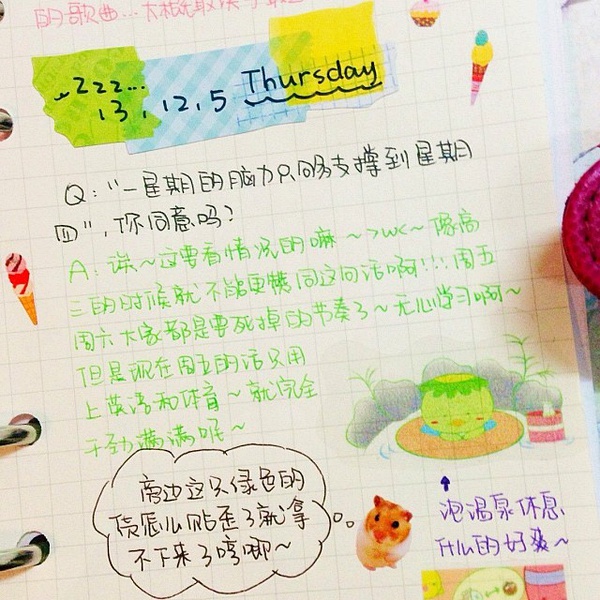 的歌曲...大概取决于最近
zzz...
13.12.5 Thursday
Q:"一星期的脑力只够支撑到星期
四",你同意吗?
A:诶~这要看情况的嘛~>w<~像高
三的时候就不能更赞同这句话啊!!!周五
周六大家都是要死掉的节奏了~无心学习啊~
但是现在周五的话只用
上英语和体育~就完全
干劲满满呢~
旁边这只绿色的
货怎么贴歪了就拿
不下来了哼唧~
泡温泉休息
什么的好爽~